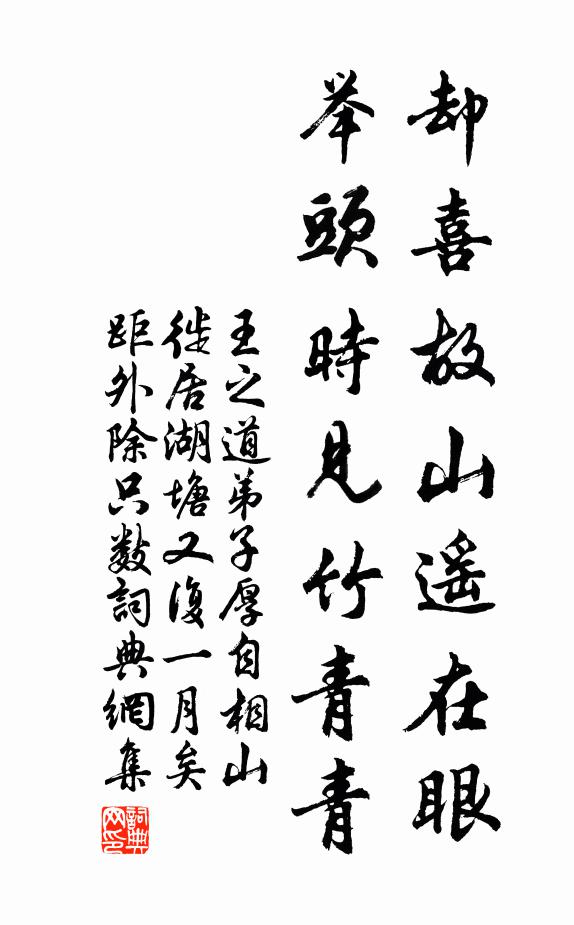 却喜故山遥在眼
举頭時見竹青青
王之道弟子厚自相山
徙居湖塘又復一月矣
距外除只數詞典網集
詞典网印